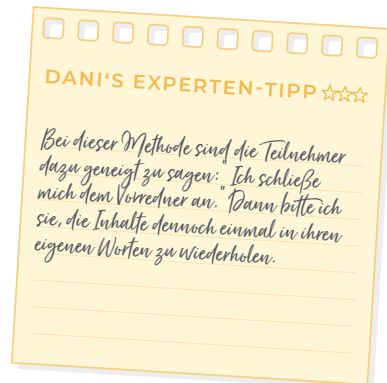 DANI'S EXPERTEN-TIPP ☆☆☆
Bei dieser Methode sind die Teilnehmer
dazu geneigt zu sagen: "Ich schließe
mich dem Vorredner an." Dann bitte ich
sie, die Inhalte dennoch einmal in ihren
eigenen Worten zu wiederholen.